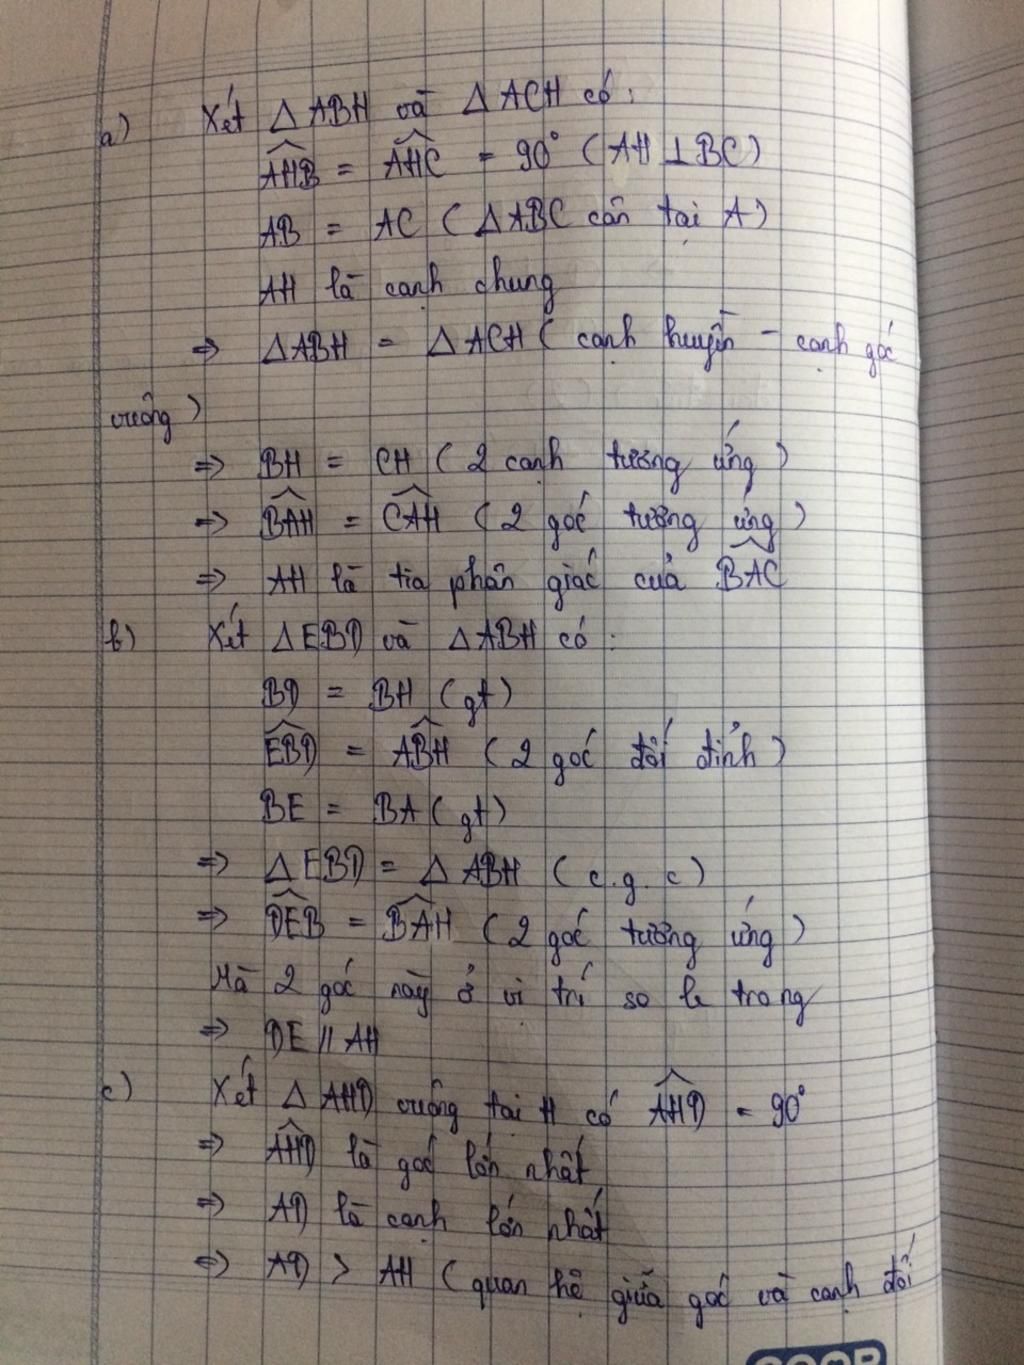 a) Xét △ABH và △ACH có:
$\widehat{AHB}$ = $\widehat{AHC}$ = 90° (AH ⊥ BC)
AB = AC (△ABC cân tại A)
AH là cạnh chung
⇒ △ABH = △ACH (cạnh huyền - cạnh góc
vuông)
⇒ BH = CH (2 cạnh tương ứng)
⇒ $\widehat{BAH}$ = $\widehat{CAH}$ (2 góc tương ứng)
⇒ AH là tia phân giác của $\widehat{BAC}$
b) Xét △EBD và △ABH có:
BD = BH (gt)
$\widehat{EBD}$ = $\widehat{ABH}$ (2 góc đối đỉnh)
BE = BA (gt)
⇒ △EBD = △ABH (c.g.c)
⇒ $\widehat{DEB}$ = $\widehat{BAH}$ (2 góc tương ứng)
Mà 2 góc này ở vị trí so le trong
⇒ DE // AH
c) Xét △AHD vuông tại H có $\widehat{AHD}$ = 90°
⇒ $\widehat{AHD}$ là góc lớn nhất
⇒ AD là cạnh lớn nhất
⇒ AD > AH (quan hệ giữa góc và cạnh đối